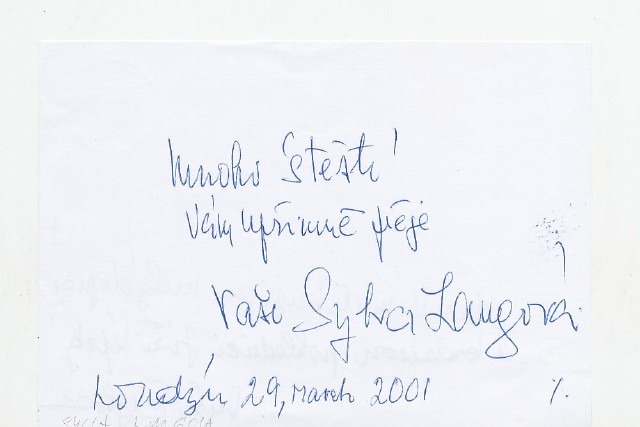 mnoho štěstí
Vám upřímně přeje
Vaše Sylva Langová
Londýn 29, March 2001 %.